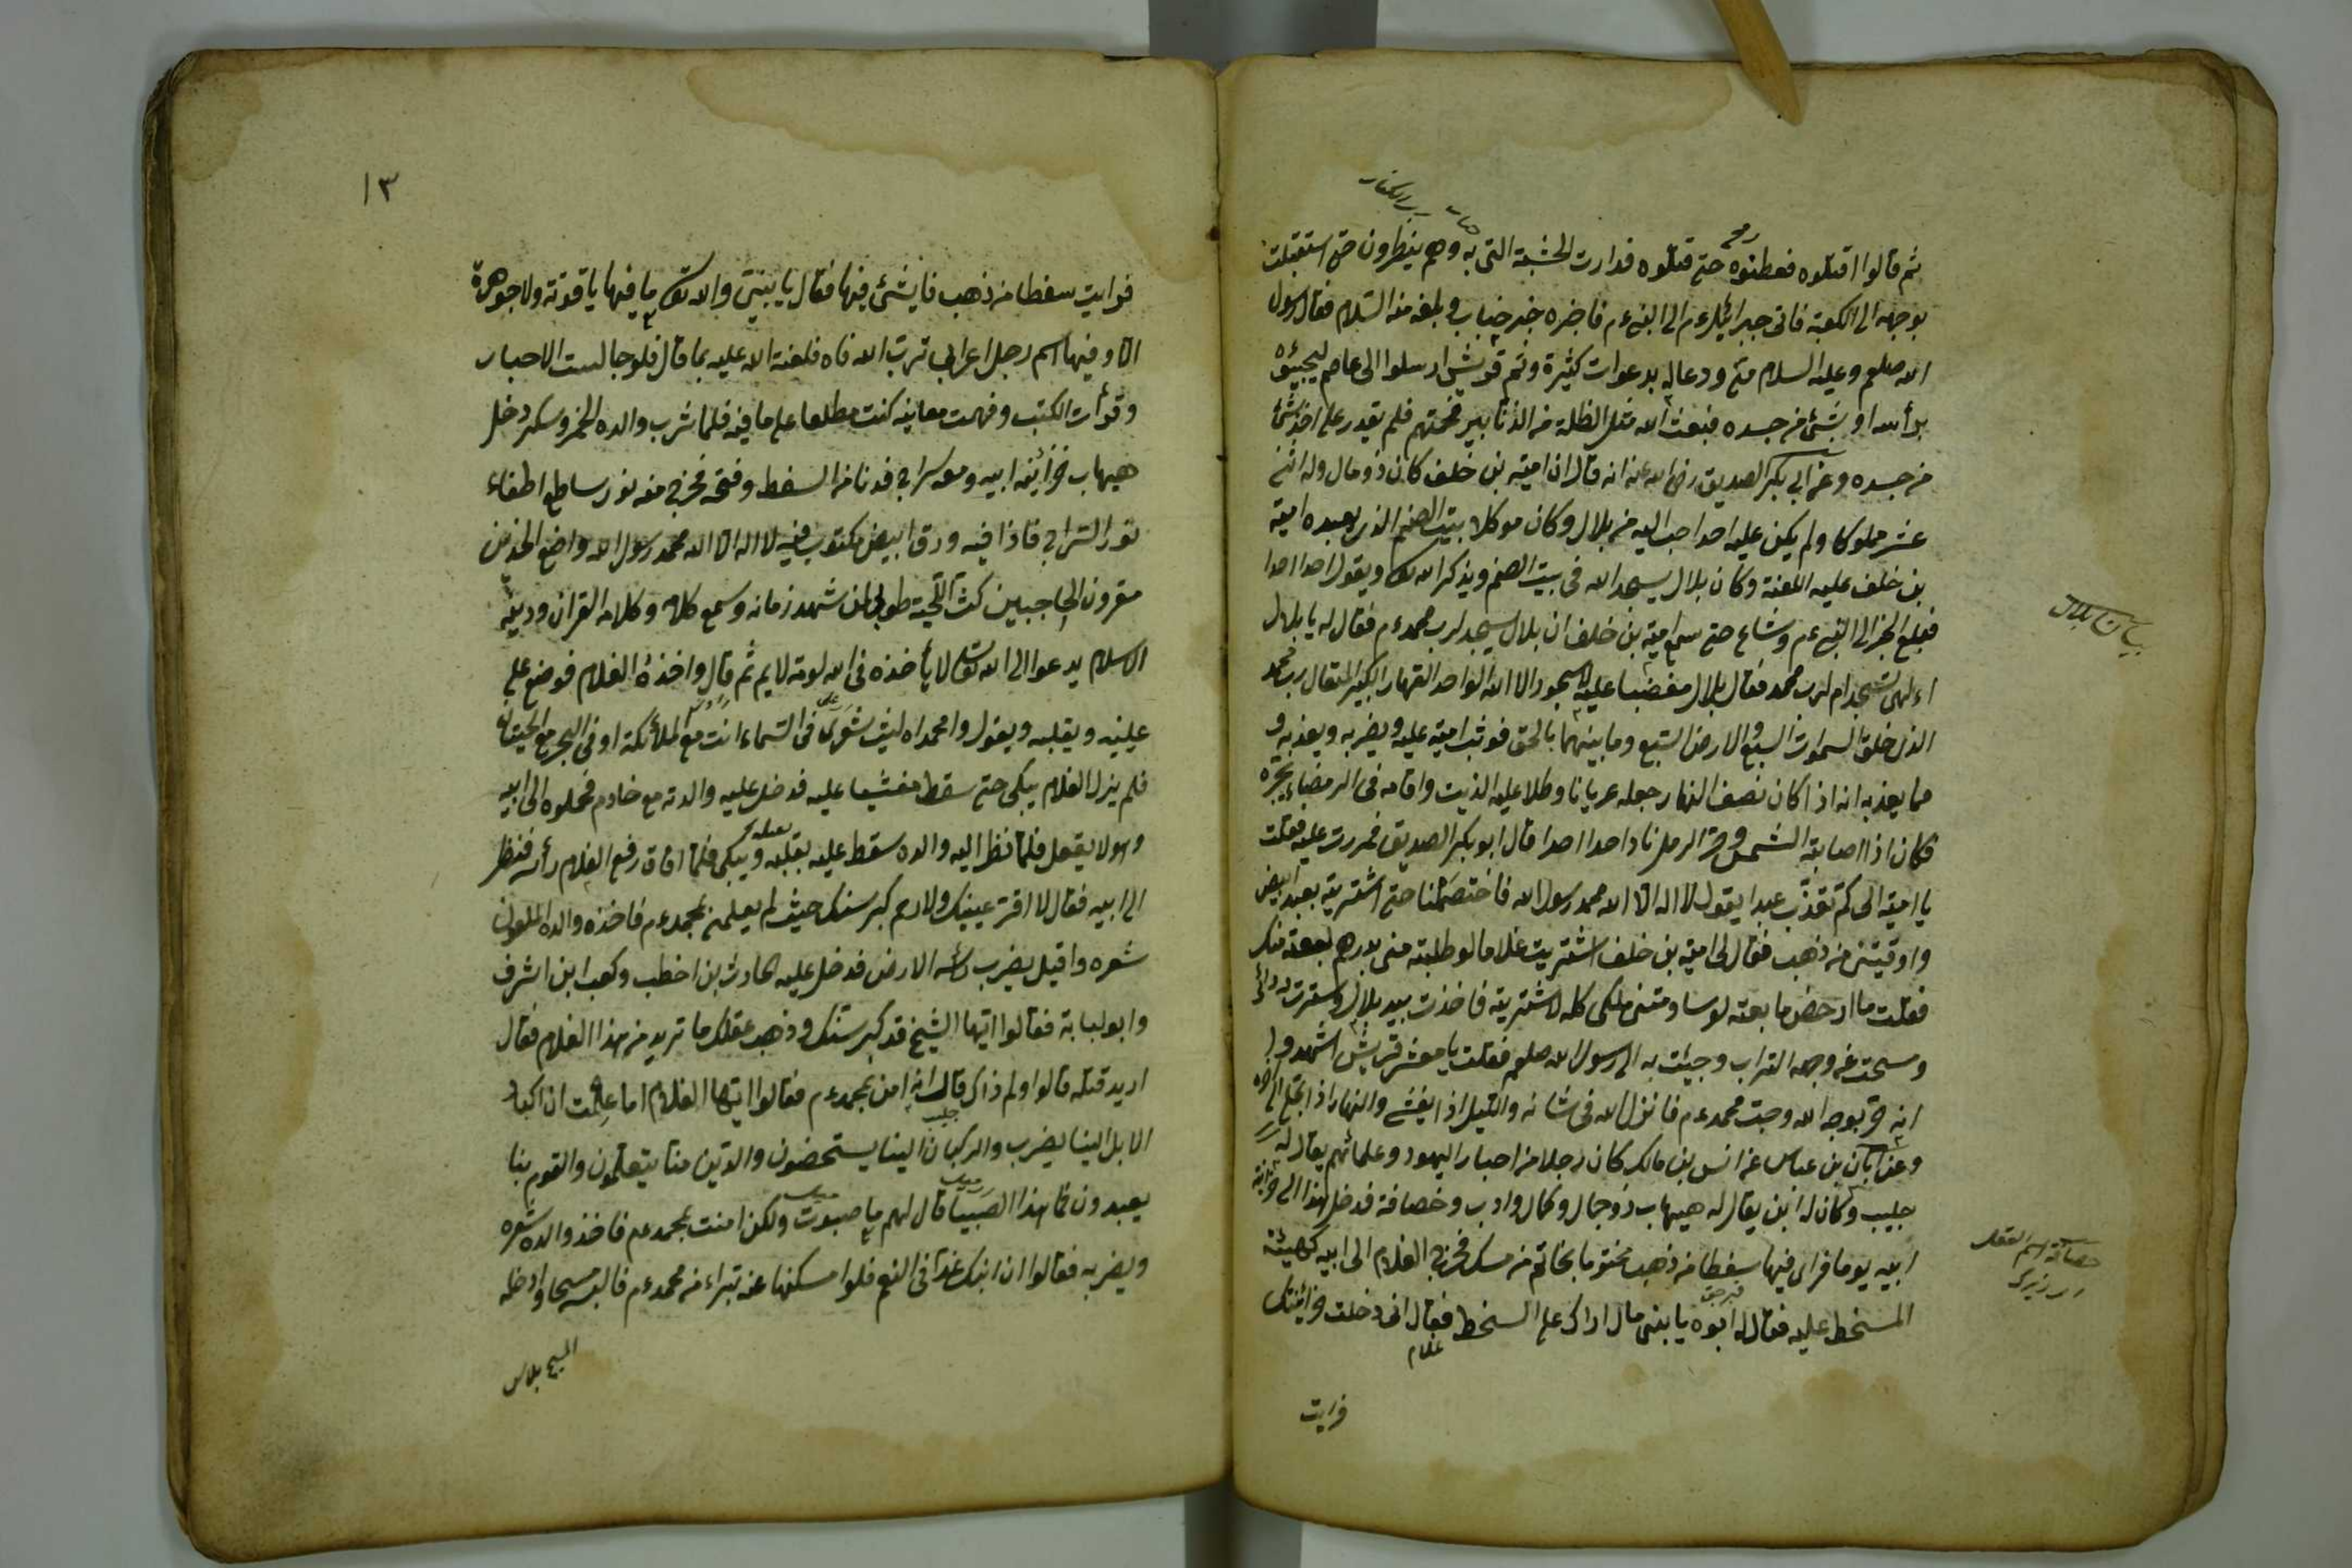 ثم قالوا اقتلوه فطعنوه حتى قتلوه فدارت الخشبة التى به وهم ينظرون حتى استقبلت
بوجهه الى الكعبة فاتى جبرائيل ءم الى النبى ءم فاخبره خبر خباب و بلغه منه السلام فقال رسول
الله صلعم وعليه السلام منى ودعا له بدعوات كثيرة وثم قريش ارسلوا الى عاصم ليجيئوه
برأسه او بشئ من جسده فبعث الله مثل الظلة من الذنابير فحمتهم فلم يقدر على اخذ شئ
من جسده وعن ابى بكر الصديق رضى الله عنه انه قال ان امية بن خلف كان ذو مال وله اثنى
عشر مملوكا ولم يكن عليه احد احب اليه من بلال وكان موكلا ببيت الصنم الذى يعبده امية
بن خلف عليه اللعنة وكان بلال يسجد الله فى بيت الصنم ويذكر الله تعا ويقول احدا احدا
فبلغ الخبر الى النبى ءم وشاع حتى سمع امية بن خلف ان بلال يسجد لرب محمد ءم فقال له يا بلال
اءلهى تسجد ام لرب محمد فقال بلال مغضبا عليه لا سجود الا الله الواحد القهار الكبير المتعال رب محمد
الذى خلق السموات السبع والارض السبع وما بينهما بالحق فوثب امية عليه ويضربه ويعذبه و
مما يعذبه انه اذا كان نصف النهار جعله عريانا وطلا عليه الذيت واقامه فى الرمضاء بحره
فكان اذا اصابته الشمس وحر الرمل نادا احدا احدا قال ابو بكر الصديق فمررت عليه فقلت
يا امية الى كم تعذب عبدا يقول لا اله الا الله محمد رسول الله فاختصمنا حتى اشتريته بعبد ابيض
واوقيتين من ذهب فقال لى امية بن خلف اشتريت غلاما لو طلبته منى بدرهم لبعته منك
فقلت ما ارخص ما بعته لو ساومتنى ملكى كله لاشتريته فاخذت بيد بلال وسترته بردائى
ومسحت عن وجهه التراب وجيئت به الى رسول الله صلعم فقلت يا معشر قريش اشهدوا
انه حر بوجه الله وحب محمد ءم فانزل الله فى شانه والليل اذا يغشى والنهار اذا تجلى الى اخره
وعن ابان بن عباس عن انس بن مالك كان رجلا من احبار اليهود وعلمائهم يقال له
حبيب وكان له ابن يقال له هيهاب ذو جمال وكمال وادب وخصافة فدخل هذا الى خزانة
ابيه يوما فراى فيها سفطا من ذهب مختوما بخاتم من مسك فخرج الغلام الى ابيه كهيئة
المسخط عليه فقال له ابوه يا بنى مال اراك على السخط فقال انى دخلت خزائنتك
فرايت
بيان بلال
خصافة اسم العقل
فرايت سفطا من ذهب فايشئ فيها فقال يا بنيى والله تعا ما فيها ياقوتة ولا جوهرة
الا وفيها اسم رجل اعرابى تربت الله فاه فلعنة الله عليه بما قال فلو جالست الاحبار
وقرأت الكتب وفهمت معانيه كنت مطلعا على ما فيه فلما شرب والده الخمر وسكر دخل
هيهاب خزائنه ابيه ومعه سراج فدنا من السفط وفتحه فخرج منه نور ساطع اطفاء
نور السراج فاذا فيه ورق ابيض مكتوب فيه لا اله الا الله محمد رسول الله واضع الخدين
مقرون الحاجبين كث اللحية طوبى لمن شهد زمانه وسمع كلامه وكلامه القران ودينه
الاسلام يدعوا الى الله تعا لا يأخذه فى الله لومة لايم ثم قال واخذه الغلام فوضع على
عينيه ويقبله ويقول وا محمداه ليت شعرى فى السماء انت مع الملائكة او فى البحر مع الحيتان
فلم يزل الغلام يبكى حتى سقط مغشيا عليه فدخل عليه والدته مع خادم فحملوه الى ابيه
وهو لا يعقل فلما نظر اليه والده سقط عليه يقبله ويبكى فلما افاق رفع الغلام رأسه فنظر
الى ابيه فقال لا اقر عينيك ولا رحم كبر سنك حيث لم يعلمنى بمحمد ءم فاخذه والده الملعون
شعره واقبل يضرب رأسه الارض فدخل عليه الحارث بن اخطب وكعب ابن اشرف
وابو لبابة فقالوا ايها الشيخ قد كبر سنك وذهب عقلك ما تريد من هذا الغلام فقال
اريد قتله قالوا ولم ذاك قال انه امن بمحمد ءم فقالوا ايها الغلام اما علمت ان اكباد
الابل الينا يضرب والركبان الينا يستحضون والدين منا يتعلمون والقوم بنا
يعبدون فما هذا الصبيا قال لهم ما صبوت ولكن امنت بمحمد ءم فاخذ والده شعره
ويضربه فقالوا ان ابنك غذا فى النعم فلوا مسكنها عنه تبراء من محمد ءم فالبسه مسحا وادخله
المسح بلاس
١٣